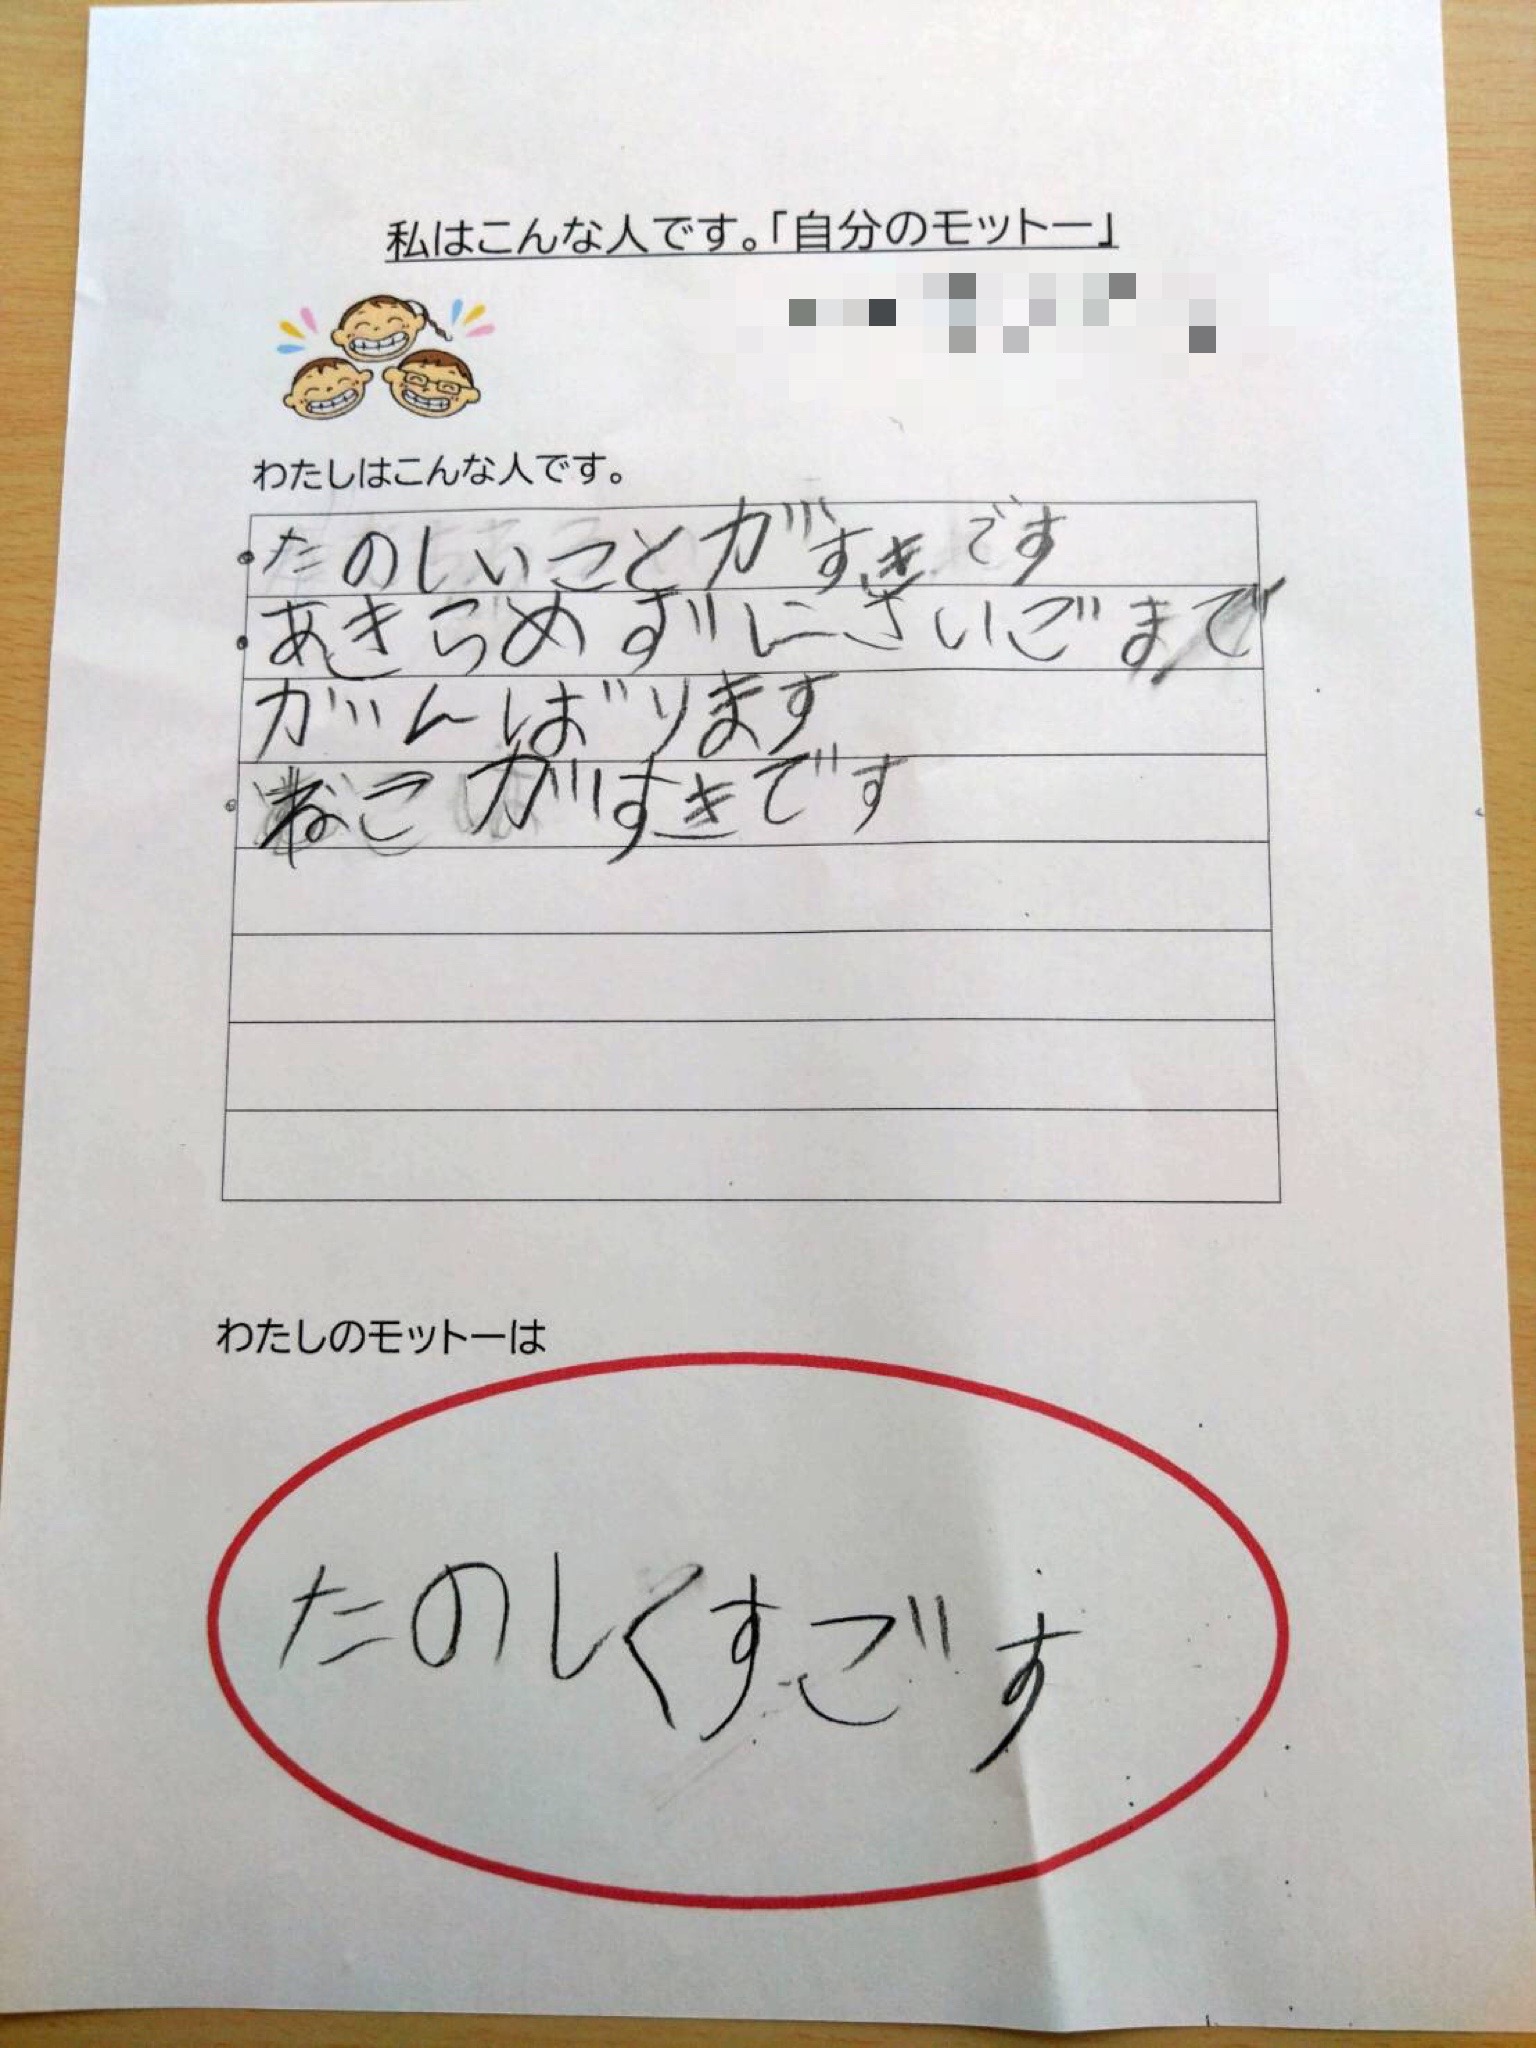 私はこんな人です。「自分のモットー」
わたしはこんな人です。
・たのしいことがすきです
・あきらめずにさいごまで
がんばります
・ねこがすきです
わたしのモットーは
たのしくすごす